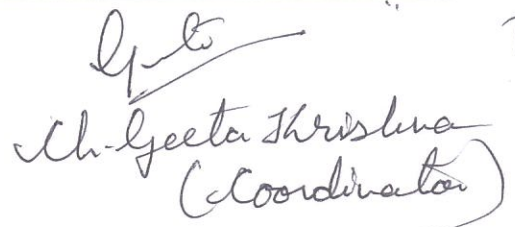 Ch. Geeta Khrishna
(Coordinator)